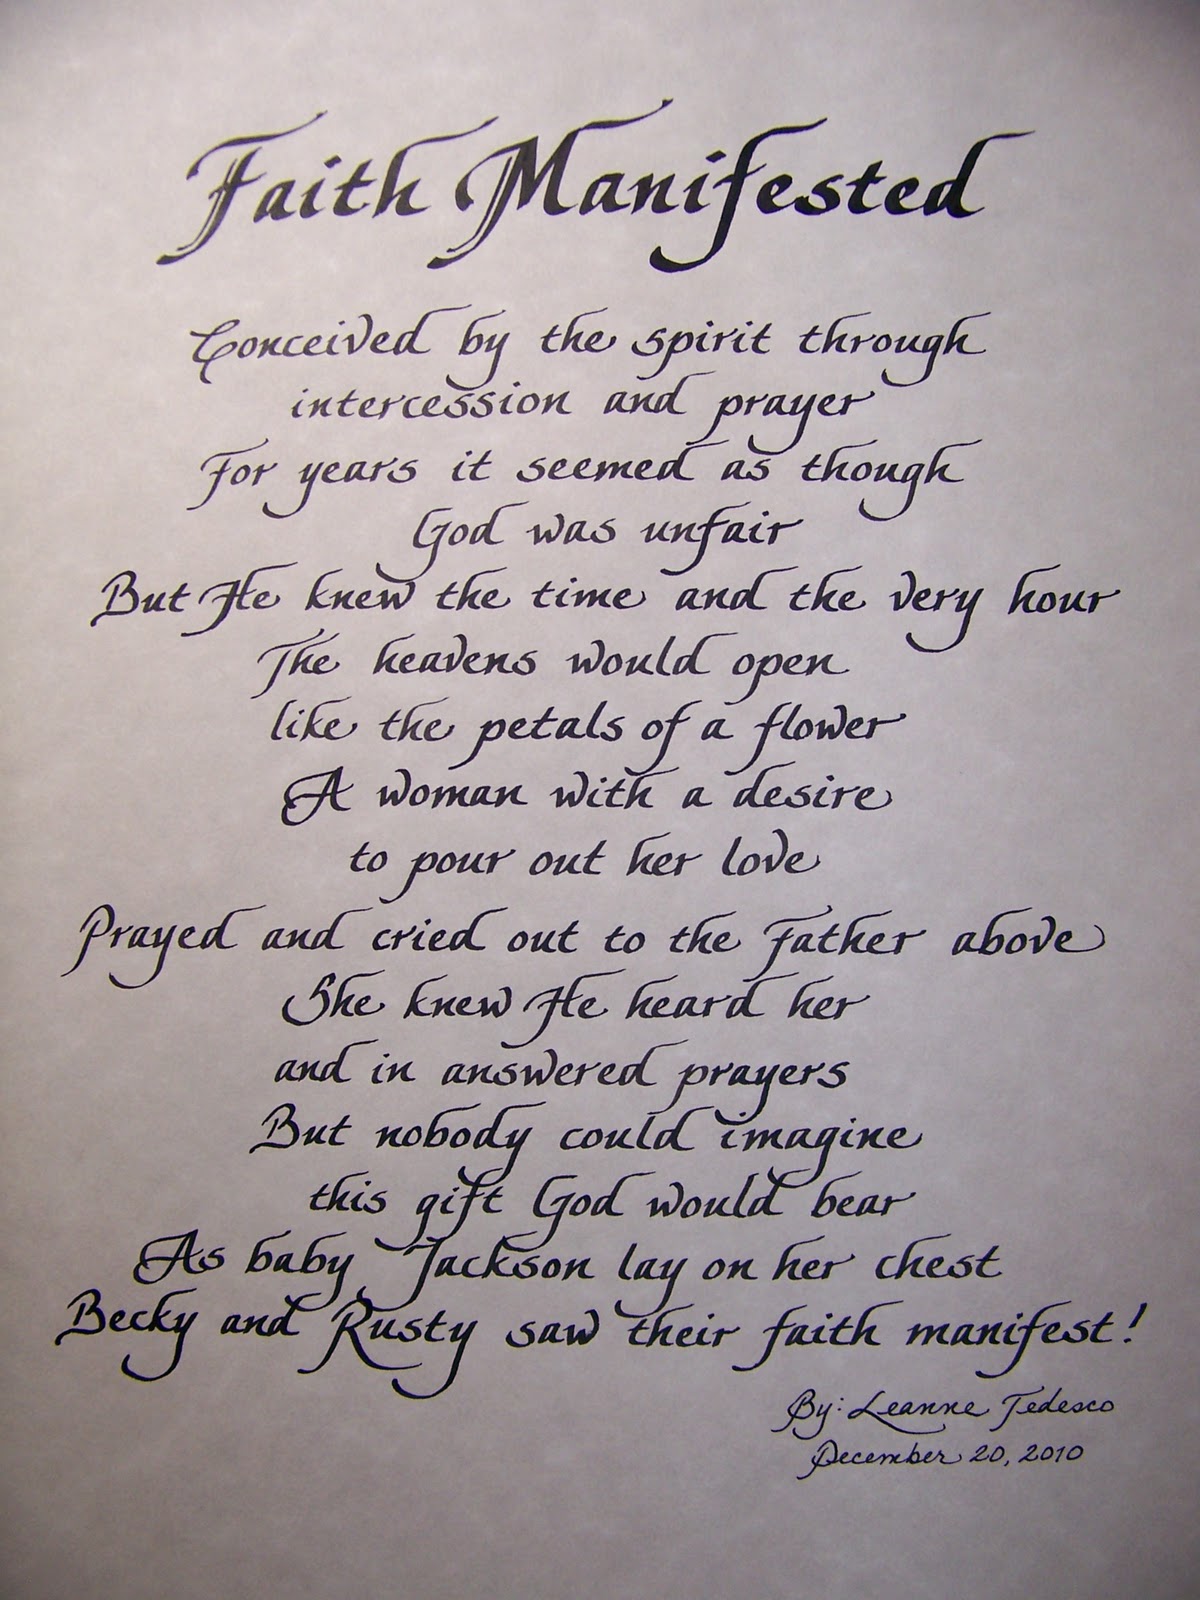 Faith Manifested
Conceived by the spirit through
intercession and prayer
For years it seemed as though
God was unfair
But He knew the time and the very hour
The heavens would open
like the petals of a flower
A woman with a desire
to pour out her love
Prayed and cried out to the Father above
She knew He heard her
and in answered prayers
But nobody could imagine
this gift God would bear
As baby Jackson lay on her chest
Becky and Rusty saw their faith manifest!
By: Leanne Tedesco
December 20, 2010